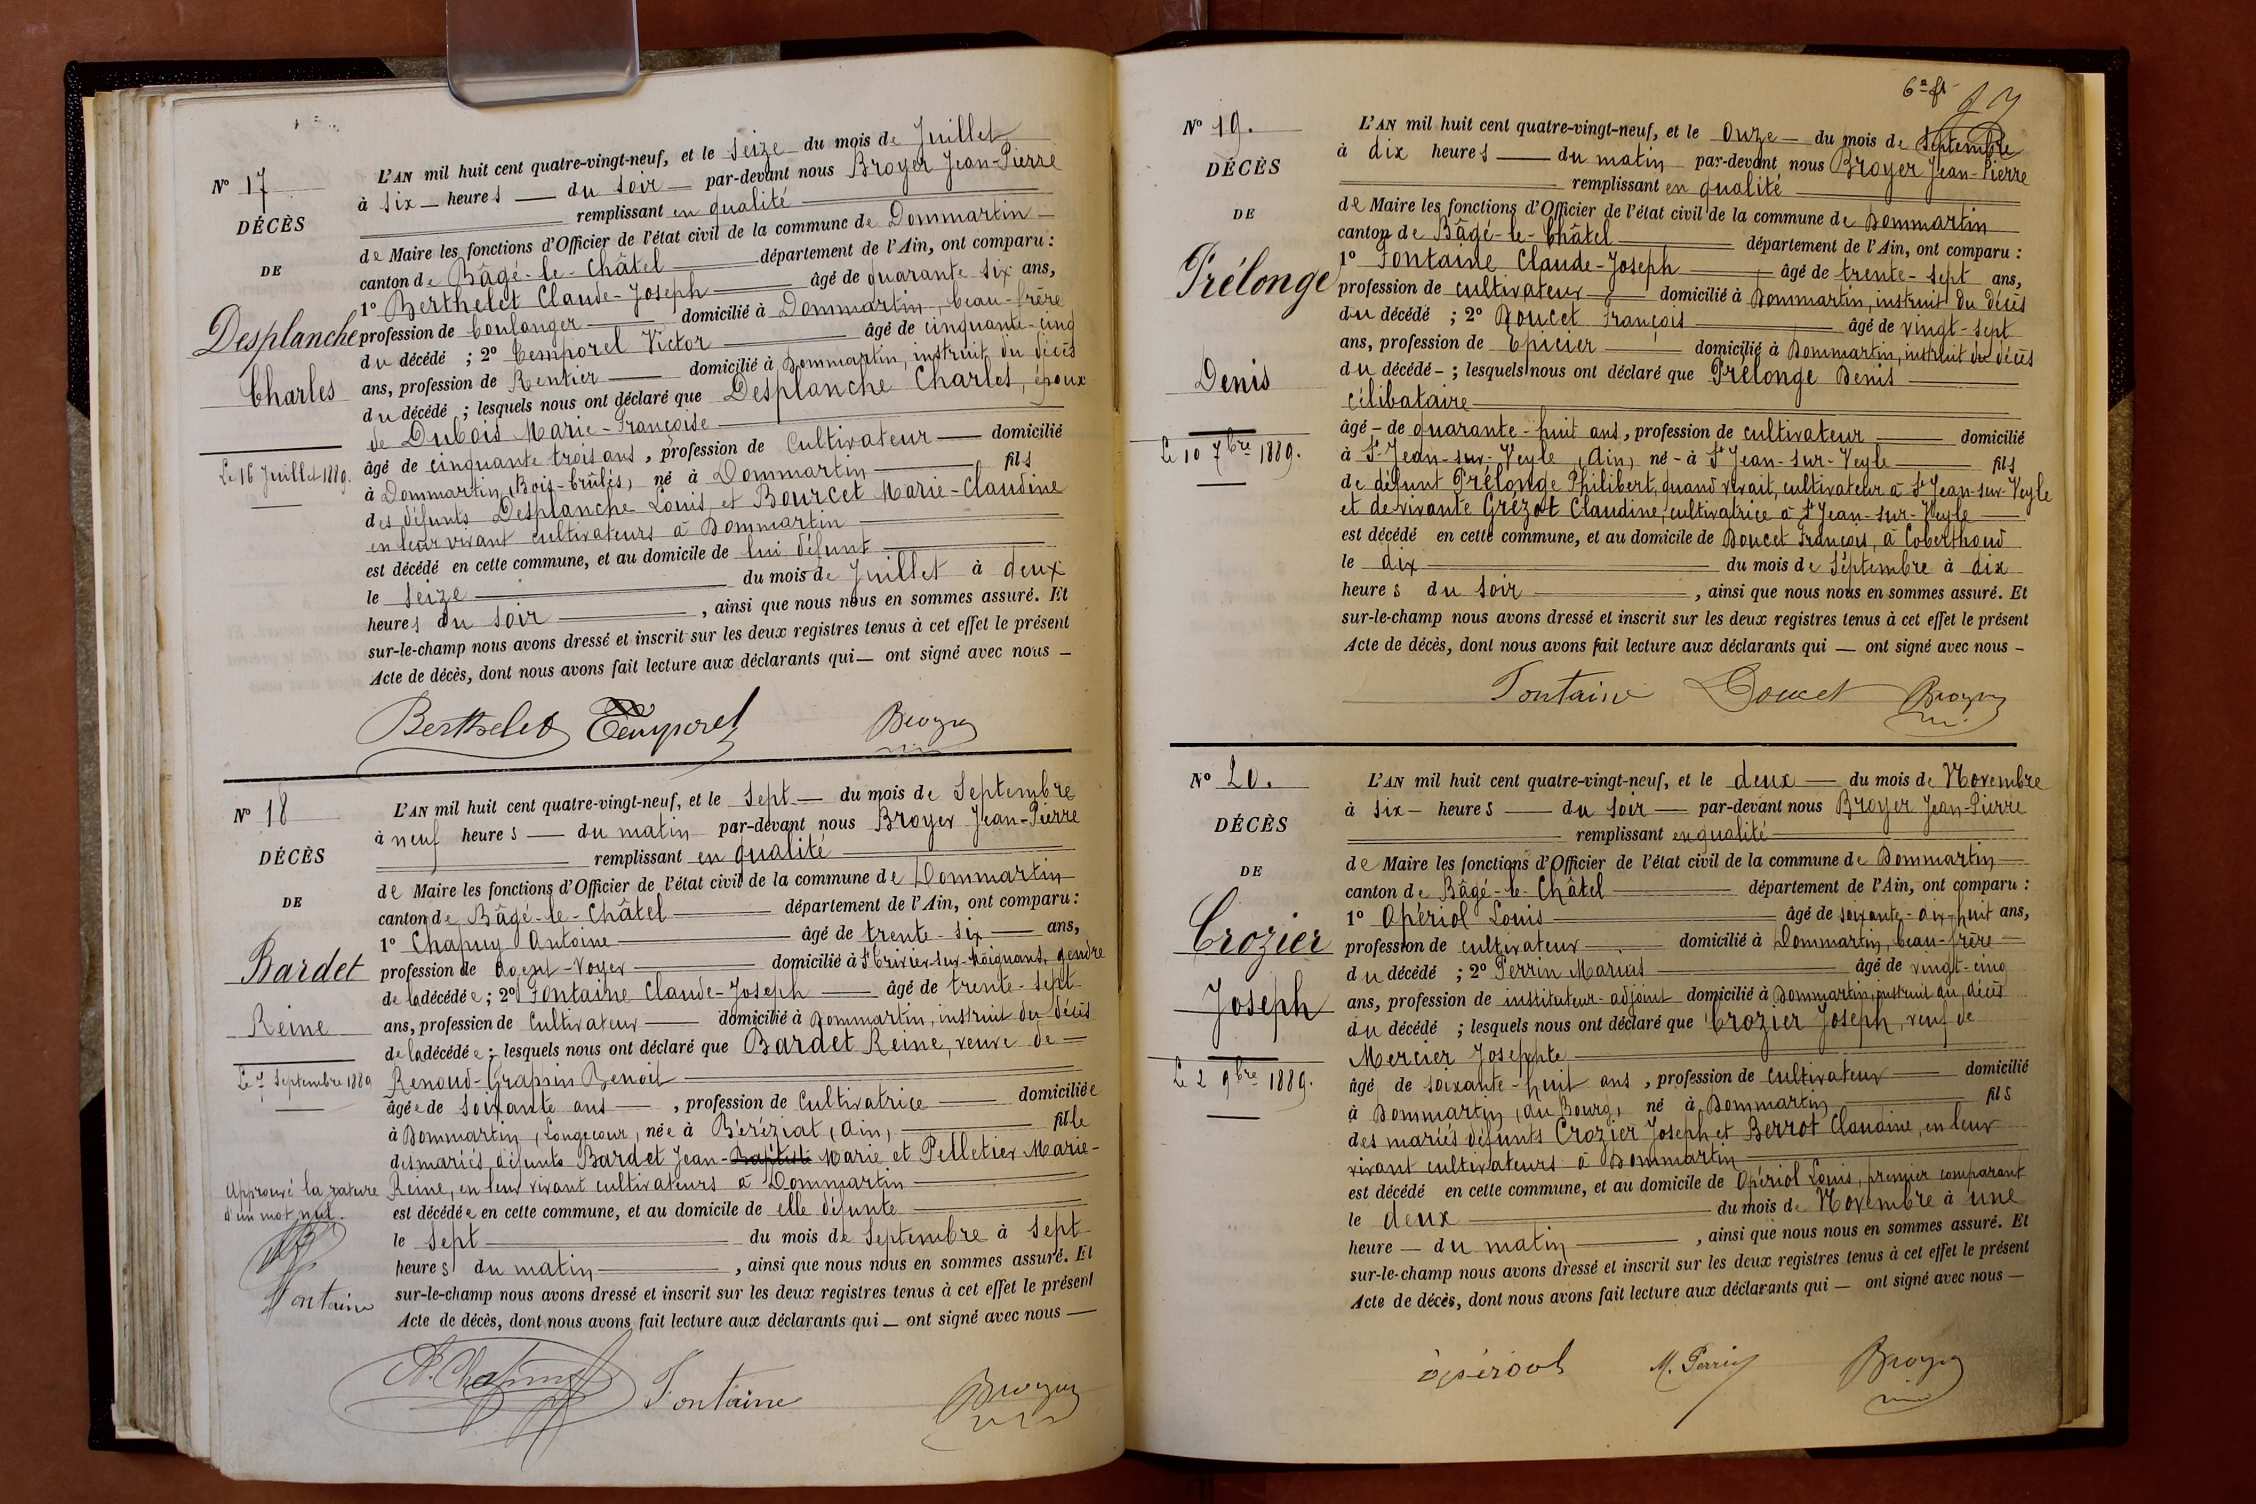 N° 17
DÉCÈS
DE
Desplanche
Charles
Le 16 Juillet 1889.
L'AN mil huit cent quatre-vingt-neuf, et le seize du mois de Juillet
à six heures du soir par-devant nous Broyer Jean-Pierre
remplissant en qualité
de Maire les fonctions d'Officier de l'état civil de la commune de Dommartin
canton de Bâgé-le-Châtel département de l'Ain, ont comparu :
1° Berthelet Claude-Joseph âgé de quarante six ans,
profession de boulanger domicilié à Dommartin, beau-frère
du décédé ; 2° Temporel Victor âgé de cinquante-cinq
ans, profession de Rentier domicilié à Dommartin, instruit du décès
du décédé ; lesquels nous ont déclaré que Desplanche Charles, époux
de Dubois Marie-Françoise
âgé de cinquante trois ans, profession de Cultivateur domicilié
à Dommartin (Bois-brûlés) né à Dommartin fils
des défunts Desplanche Louis et Bourcet Marie-Claudine
en leur vivant cultivateurs à Dommartin
est décédé en cette commune, et au domicile de lui défunt
le seize du mois de Juillet à deux
heures du soir , ainsi que nous nous en sommes assuré. Et
sur-le-champ nous avons dressé et inscrit sur les deux registres tenus à cet effet le présent
Acte de décès, dont nous avons fait lecture aux déclarants qui — ont signé avec nous —
Berthelet Temporel Broyer
N° 18
DÉCÈS
DE
Bardet
Reine
Le 7 Septembre 1889
Approuvé la rature
d'un mot nul.
Fontaine
L'AN mil huit cent quatre-vingt-neuf, et le sept du mois de Septembre
à neuf heures du matin par-devant nous Broyer Jean-Pierre
remplissant en qualité
de Maire les fonctions d'Officier de l'état civil de la commune de Dommartin
canton de Bâgé-le-Châtel département de l'Ain, ont comparu :
1° Chapuy Antoine âgé de trente-six ans,
profession de agent-voyer domicilié à St Trivier-sur-Moignans, gendre
de la décédée ; 2° Fontaine Claude-Joseph âgé de trente-sept
ans, profession de Cultivateur domicilié à Dommartin, instruit du décès
de la décédée ; lesquels nous ont déclaré que Bardet Reine, veuve de
Renoud-Grappin Benoit
âgée de soixante ans , profession de Cultivatrice domiciliée
à Dommartin, (Longecour) née à Béréziat (Ain) fille
des mariés défunts Bardet Jean-Baptiste Marie et Pelletier Marie-
Reine, en leur vivant cultivateurs à Dommartin
est décédée en cette commune, et au domicile de elle défunte
le sept du mois de Septembre à sept
heures du matin , ainsi que nous nous en sommes assuré. Et
sur-le-champ nous avons dressé et inscrit sur les deux registres tenus à cet effet le présent
Acte de décès, dont nous avons fait lecture aux déclarants qui — ont signé avec nous —
A. Chapuy Fontaine Broyer
N° 19.
DÉCÈS
DE
Prélonge
Denis
Le 10 7bre 1889.
L'AN mil huit cent quatre-vingt-neuf, et le onze du mois de Septembre
à dix heures du matin par-devant nous Broyer Jean-Pierre
remplissant en qualité
de Maire les fonctions d'Officier de l'état civil de la commune de Dommartin
canton de Bâgé-le-Châtel département de l'Ain, ont comparu :
1° Fontaine Claude-Joseph âgé de trente-sept ans,
profession de cultivateur domicilié à Dommartin, instruit du décès
du décédé ; 2° Doucet François âgé de vingt-sept
ans, profession de Epicier domicilié à Dommartin, instruit du décès
du décédé - ; lesquels nous ont déclaré que Prélonge Denis
célibataire
âgé - de quarante-huit ans, profession de cultivateur domicilié
à St-Jean-sur-Veyle (Ain) né - à St Jean-sur-Veyle fils
de défunt Prélonge Philibert, quand vivait, cultivateur à St Jean-sur-Veyle
et de vivante Grézot Claudine, cultivatrice à St Jean-sur-Veyle
est décédé en cette commune, et au domicile de Doucet François, à Coberthoud
le dix du mois de Septembre à dix
heures du soir , ainsi que nous nous en sommes assuré. Et
sur-le-champ nous avons dressé et inscrit sur les deux registres tenus à cet effet le présent
Acte de décès, dont nous avons fait lecture aux déclarants qui — ont signé avec nous —
Fontaine Doucet Broyer
N° 20.
DÉCÈS
DE
Crozier
Joseph
Le 2 9bre 1889.
L'AN mil huit cent quatre-vingt-neuf, et le deux du mois de Novembre
à six heures du soir par-devant nous Broyer Jean-Pierre
remplissant en qualité
de Maire les fonctions d'Officier de l'état civil de la commune de Dommartin
canton de Bâgé-le-Châtel département de l'Ain, ont comparu :
1° Opériol Louis âgé de soixante-dix-huit ans,
profession de cultivateur domicilié à Dommartin, beau-frère
du décédé ; 2° Perrin Marius âgé de vingt-cinq
ans, profession de instituteur-adjoint domicilié à Dommartin, instruit du décès
du décédé ; lesquels nous ont déclaré que Crozier Joseph, veuf de
Mercier Josephte
âgé de soixante-huit ans , profession de cultivateur domicilié
à Dommartin, (au Bourg) né à Dommartin fils
des mariés défunts Crozier Joseph et Berrot Claudine, en leur
vivant cultivateurs à Dommartin
est décédé en cette commune, et au domicile de Opériol Louis, premier comparant
le deux du mois de Novembre à une
heure — du matin , ainsi que nous nous en sommes assuré. Et
sur-le-champ nous avons dressé et inscrit sur les deux registres tenus à cet effet le présent
Acte de décès, dont nous avons fait lecture aux déclarants qui — ont signé avec nous —
M. Perrin Broyer